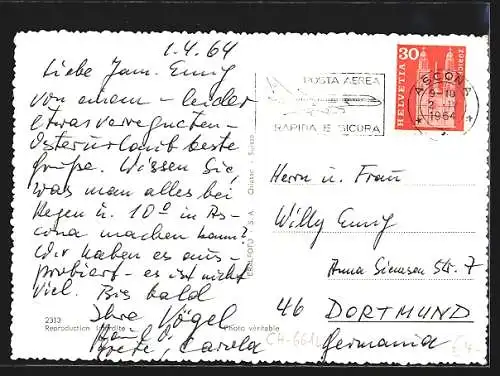 1.4.64
Liebe Fam. Emig
von einem - leider
etwas verregneten -
Osterurlaub beste
Grüße. Wissen Sie,
was man alles bei
Regen u. 10° in As-
cona machen kann?
Wir haben es aus-
probiert - es ist nicht
viel. Bis bald
Ihre Vögel
Grete, Carola
2313
Reproduction interdite
Photo véritable
S.A. Chiasso - Suisse
POSTA AEREA
RAPIDA E SICURA
30
HELVETIA
ASCONA
9-10
1964
Herrn u. Frau
Willy Emig
Anna Siemsen Str. 7
46 DORTMUND
Germania
CH-6612